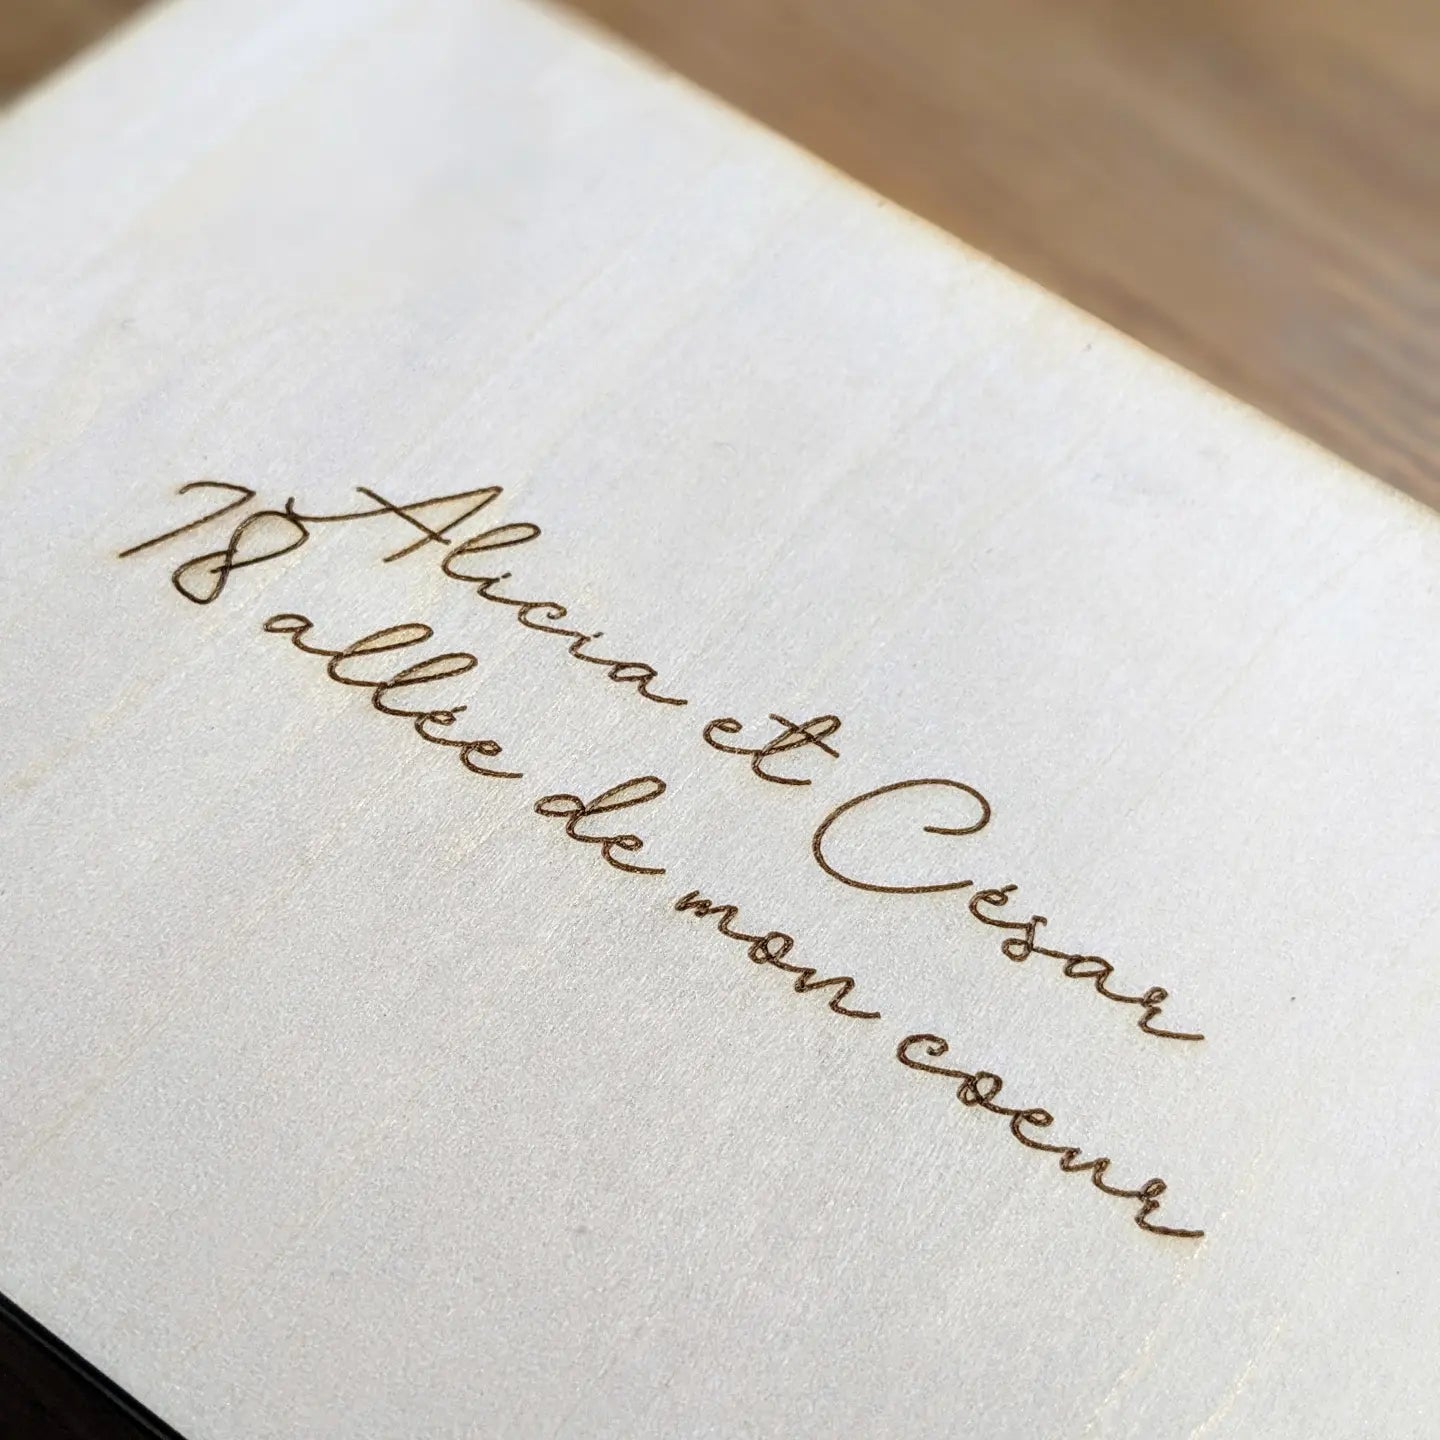 Alicia et César
78 allée de mon coeur